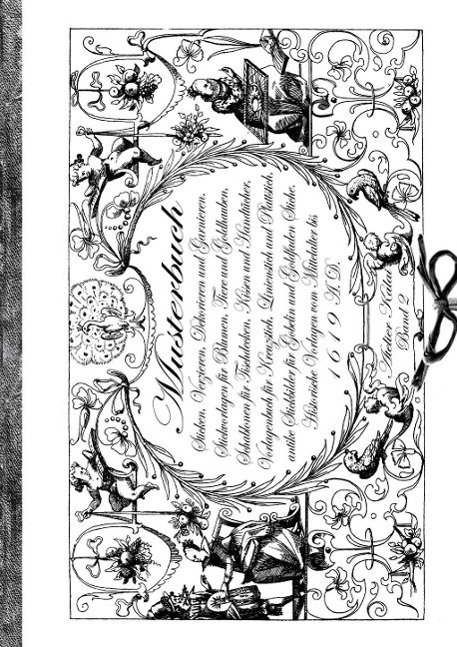 Musterbuch
Sticken, Verzieren, Dekorieren und Garnieren.
Stickvorlagen für Blumen, Tiere und Goldhauben.
Schablonen für Tischdecken, Kissen und Handtücher.
Vorlagenbuch für Kreuzstich, Leinenstich und Plattstich,
antike Stickbilder für Gobelin und Goldfaden Sticke.
Historische Vorlagen vom Mittelalter bis
1619 A.D.
Atelier Kedai
Band 2